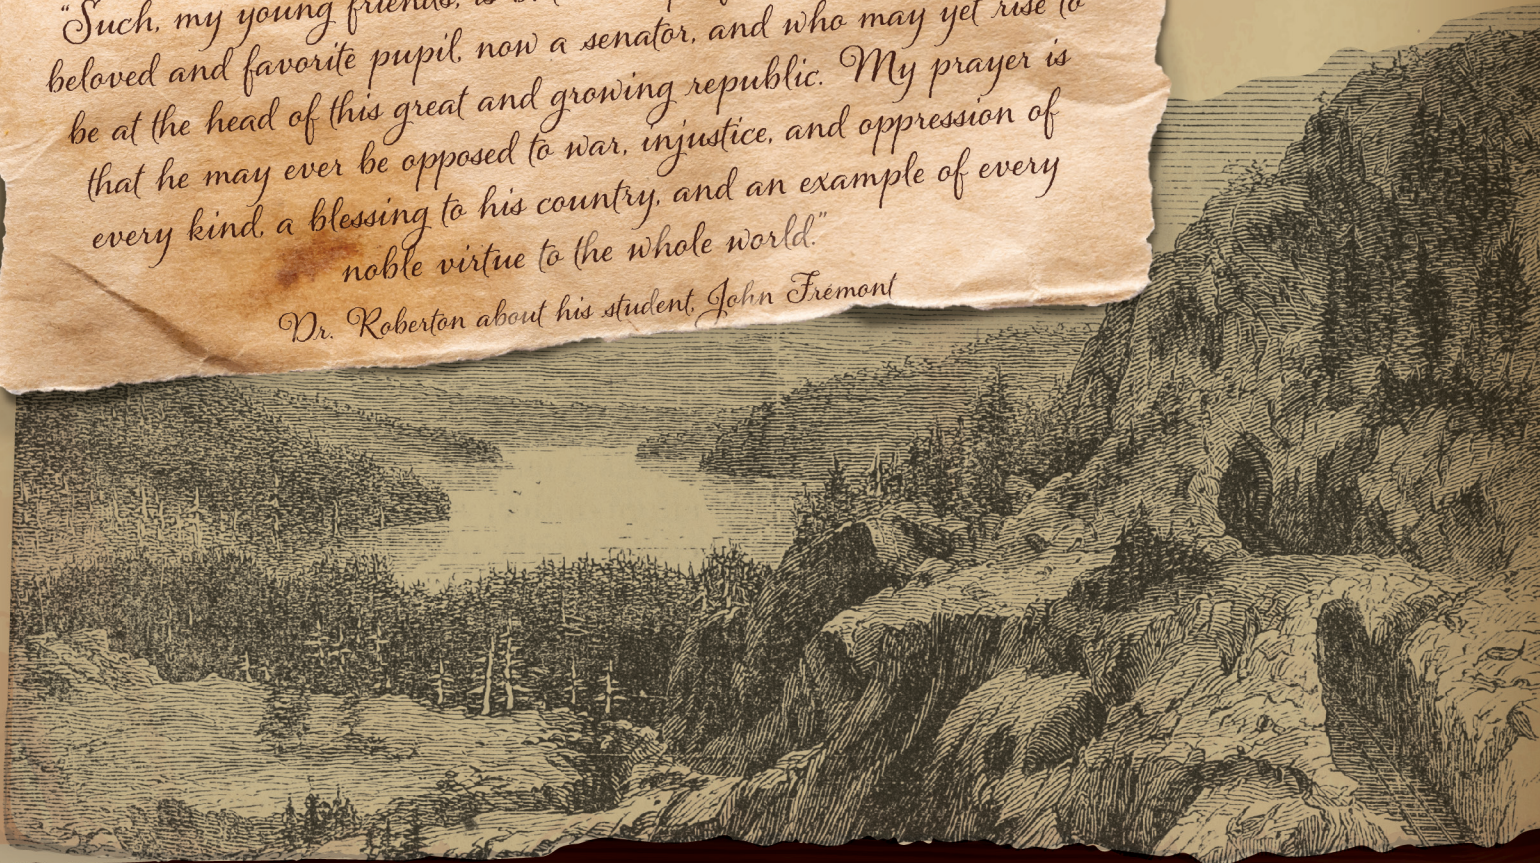 “Such, my young friends, is
beloved and favorite pupil, now a senator, and who may yet rise to
be at the head of this great and growing republic. My prayer is
that he may ever be opposed to war, injustice, and oppression of
every kind, a blessing to his country, and an example of every
noble virtue to the whole world.”
Dr. Roberton about his student, John Frémont